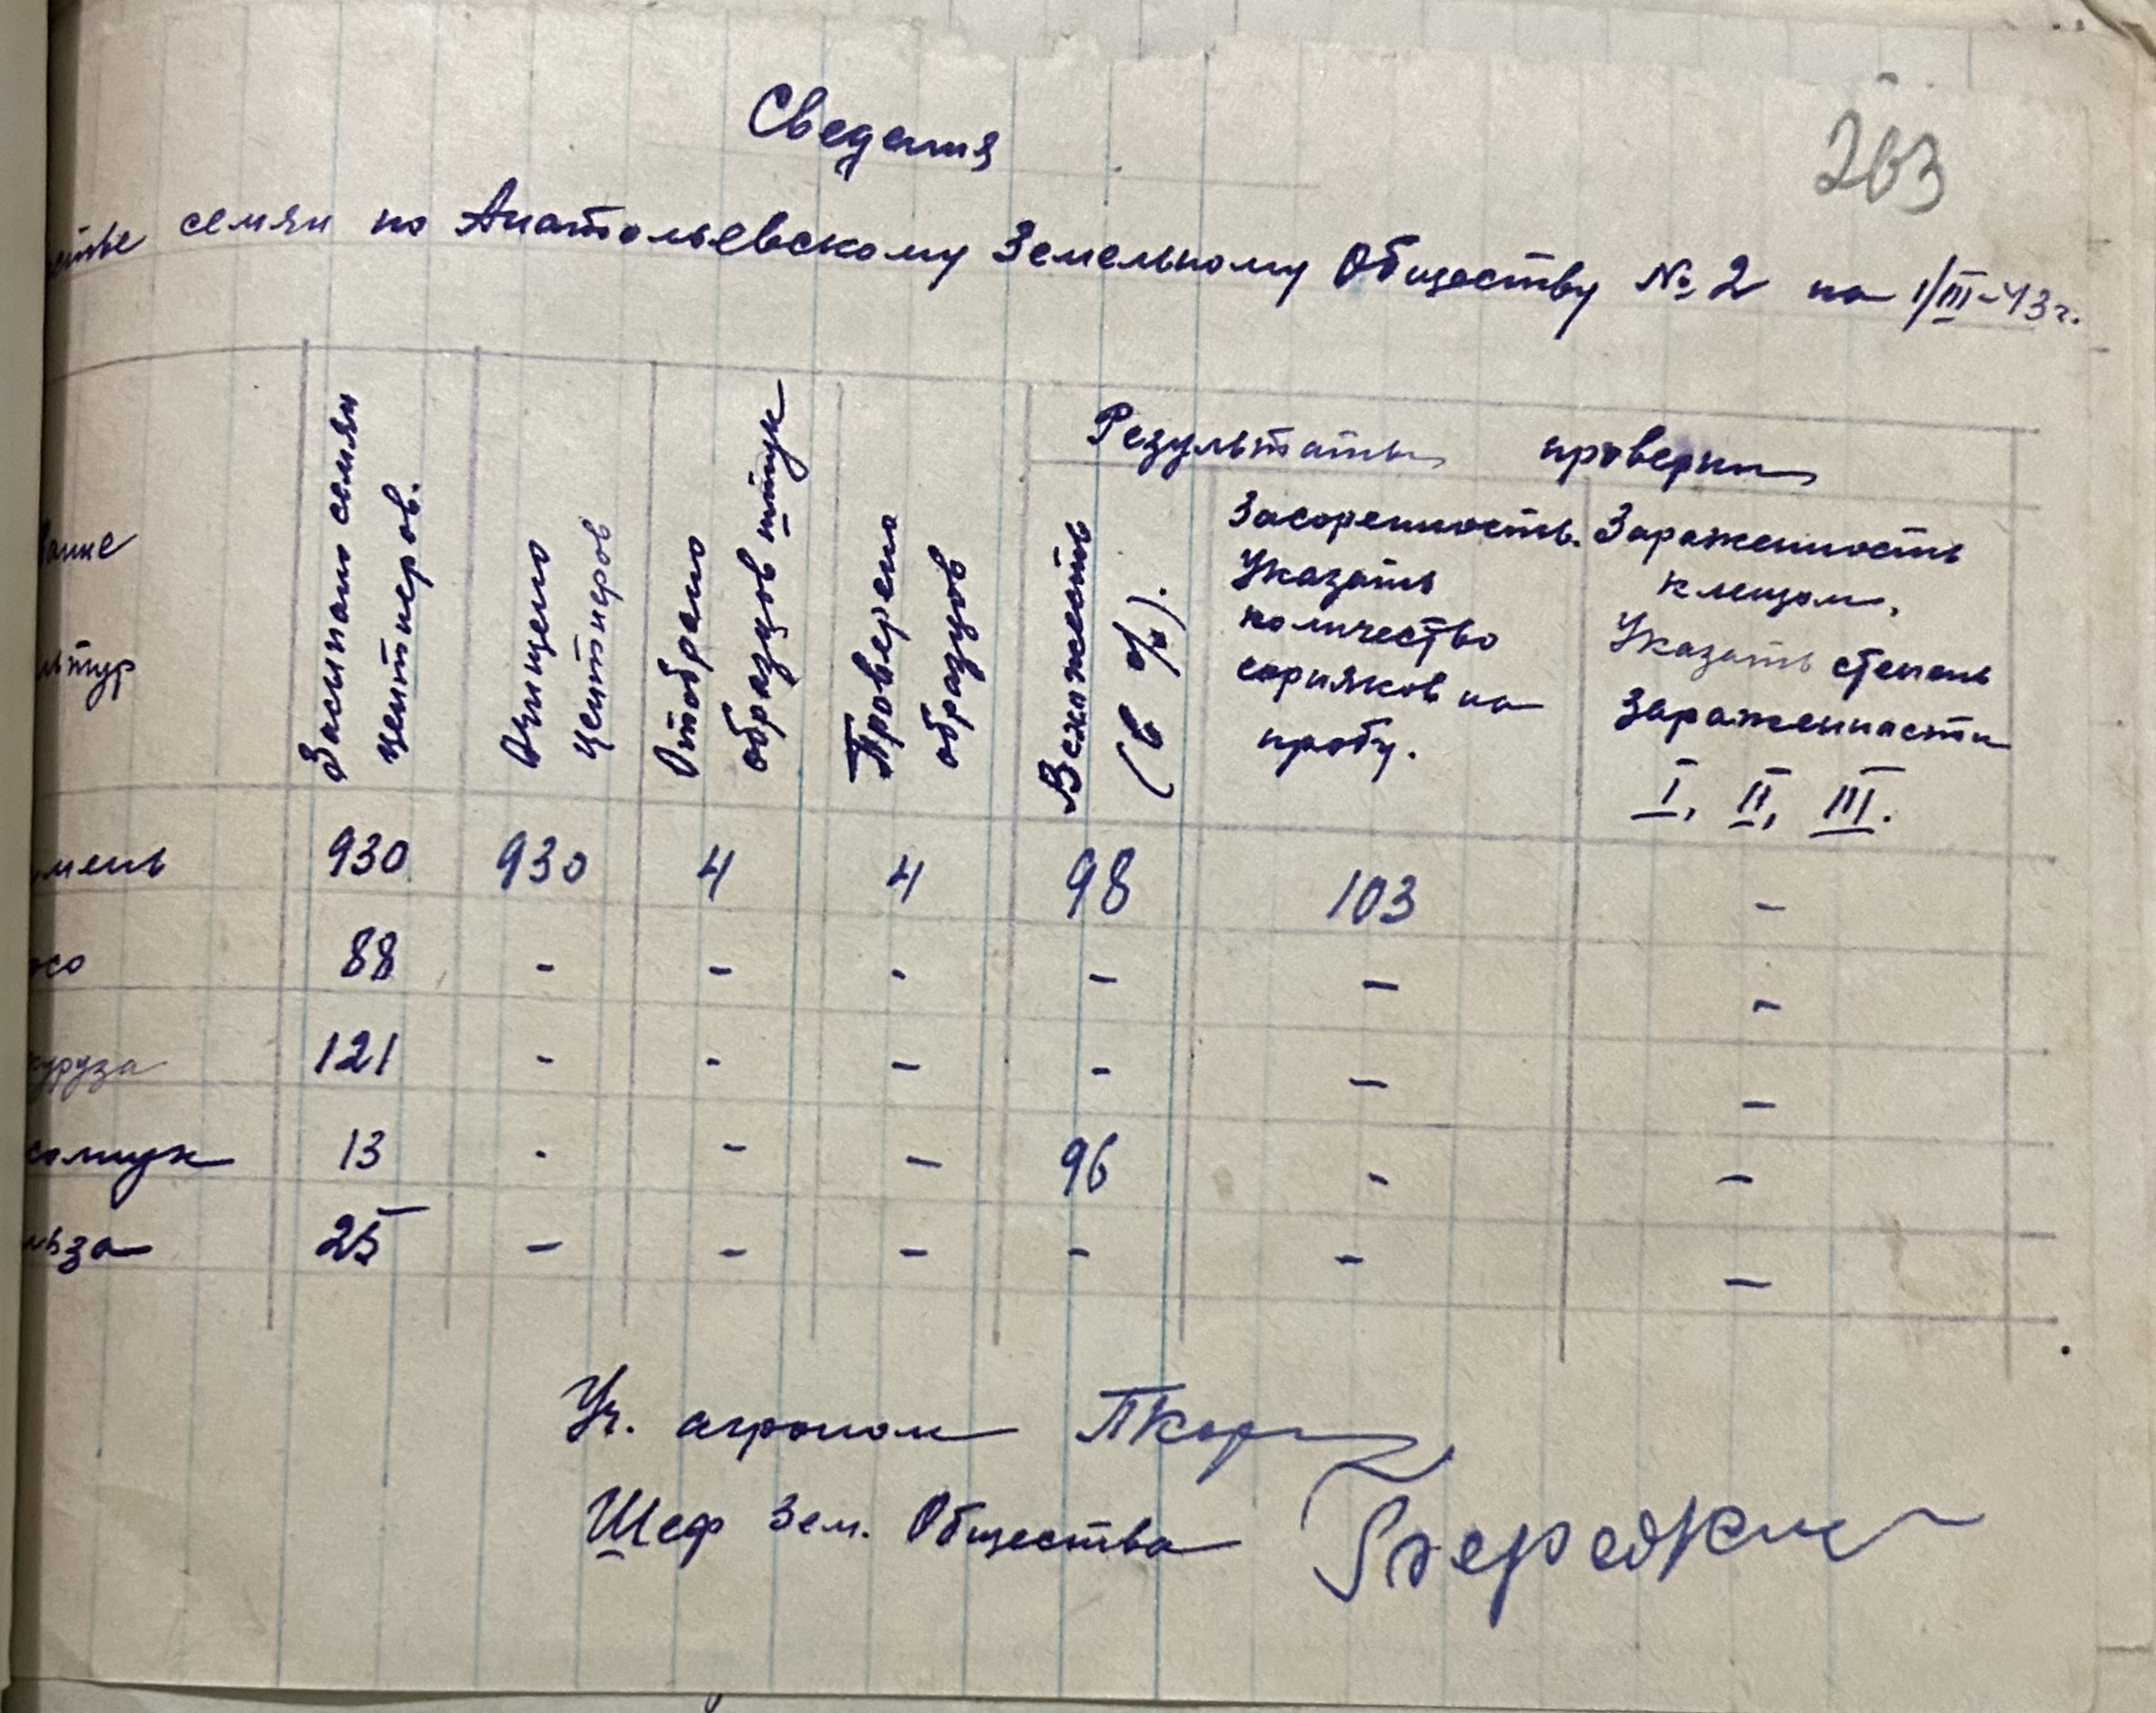 203
Сведения
семян по Анатольевскому Земельному Обществу № 2 на 1/III-43г.
Засыпано семян
центнеров.
Очищено
центнеров
Отобрано
образцов штук
Проверено
образцов
Всхожесть
(в %).
Результаты проверки
Засоренность.
Указать
количество
сорняков на
пробу.
Зараженность
клещом.
Указать степень
Зараженности
I, II, III.
мень 930 930 4 4 98 103 -
осо 88 - - - - - -
куруза 121 - - - - - -
солнух 13 - - - 96 - -
ьза 25 - - - - - -
Уч. агроном
Шеф Зем. Общества